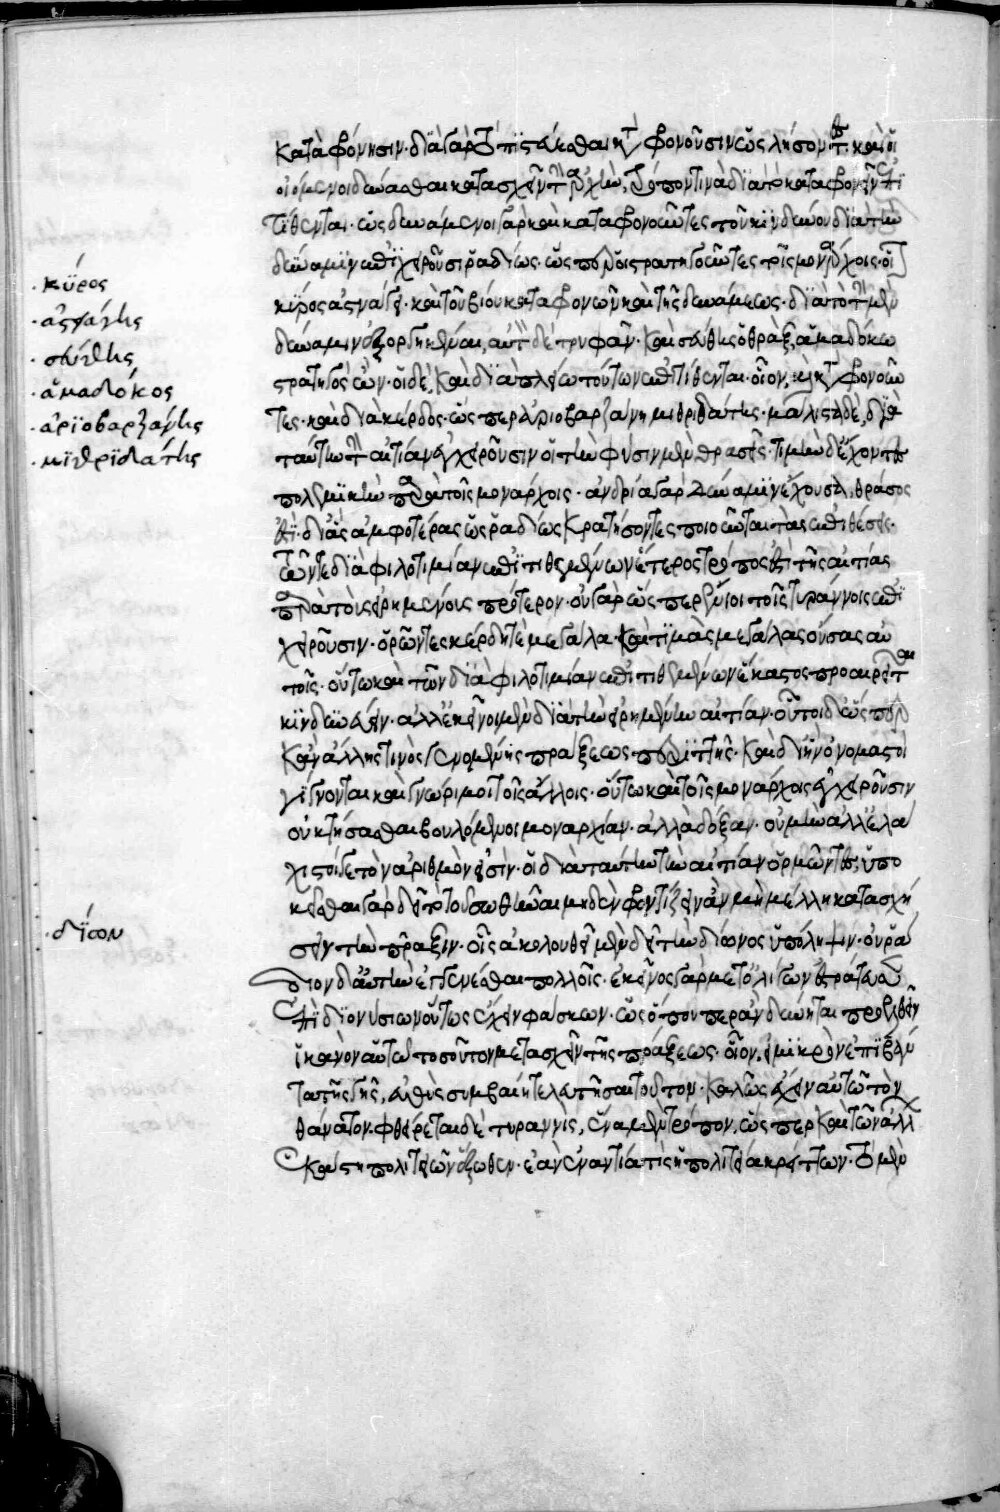 καταφρόνησιν. διὰ γὰρ τὸ πιστεύεσθαι καταφρονοῦσιν ὡς λήσοντες. καὶ οἱ
οἰόμενοι δύνασθαι κατασχεῖν τὴν ἀρχὴν, τρόπον τινὰ διὰ τὸ καταφρονεῖν ἐπι
τίθενται. ὡς δυνάμενοι γὰρ καὶ καταφρονοῦντες τοῦ κινδύνου διὰ τὴν
δύναμιν ἐπιχειροῦσι ῥαδίως. ὥσπερ οἱ στρατηγοῦντες τοῖς μονάρχοις. οἷον
κῦρος ἀστυάγει. καὶ τοῦ βίου καταφρονῶν καὶ τῆς δυνάμεως. διὰ τὸ τὴν μὲν
δύναμιν ἐξηργηκέναι, αὐτὸν δὲ τρυφᾶν. καὶ σεύθης ὁ θρᾶξ, ἀμαδόκω
στρατηγὸς ὤν. οἱ δὲ, καὶ διὰ πλείω τούτων ἐπιτίθενται. οἷον, καὶ καταφρονοῦν
τες. καὶ διὰ κέρδος. ὥσπερ ἀριοβαρζάνη μιθριδάτης. μάλιστα δὲ, διὰ
ταύτην τὴν αἰτίαν ἐγχειροῦσιν οἱ τὴν φύσιν μὲν θρασεῖς. τιμὴν δ' ἔχοντες
πολεμικὴν παρὰ τοῖς μονάρχοις. ἀνδρία γὰρ δύναμιν ἔχουσα, θράσος
ἐστι. δι' ἃς ἀμφοτέρας ὡς ῥαδίως κρατήσοντες ποιοῦνται τὰς ἐπιθέσεις.
τῶν δὲ διὰ φιλοτιμίαν ἐπιτιθεμένων ἕτερος τρόπος ἐστὶ τῆς αἰτίας
παρὰ τοὺς εἰρημένους πρότερον. οὐ γὰρ ὥσπερ ἔνιοι τοῖς τυράννοις ἐπι
χειροῦσιν. ὁρῶντες κέρδη τε μεγάλα. καὶ τιμὰς μεγάλας οὔσας αὐ
τοῖς. οὕτω καὶ τῶν διὰ φιλοτιμίαν ἐπιτιθεμένων ἕκαστος προαιρεῖται
κινδυνεύειν. ἀλλ' ἐκεῖνοι μὲν διὰ τὴν εἰρημένην αἰτίαν. οὗτοι δ' ὥσπερ
κἂν ἄλλης τινὸς γενομένης πράξεως περιττῆς. καὶ δι' ἣν ὀνομαστοὶ
γίγνονται καὶ γνώριμοι τοῖς ἄλλοις. οὕτω καὶ τοῖς μονάρχοις ἐγχειροῦσιν
οὐ κτήσασθαι βουλόμενοι μοναρχίαν. ἀλλὰ δόξαν. οὐ μὴν ἀλλ' ἐλά
χιστοί γε τὸν ἀριθμόν εἰσιν. οἱ διὰ ταύτην τὴν αἰτίαν ὁρμῶντες, ὑπο
κεῖσθαι γὰρ δεῖ τὸ τοῦ σωθῆναι μηδὲν φροντίζειν ἂν μὴ μέλλη κατασχή
σειν τὴν πρᾶξιν. οἷς ἀκολουθεῖν μὲν δεῖ τὴν δίωνος ὑπόληψιν. οὐ ῥά
διον δ' αὐτὴν ἐγγενέσθαι πολλοῖς. ἐκεῖνος γὰρ μετ' ὀλίγων ἐστράτευσεν
ἐπὶ διονύσιον οὕτως ἔχειν φάσκων. ὡς ὅπου περ ἂν δύνηται προελθεῖν
ἱκανὸν αὐτῶ τοσοῦτον μετασχεῖν τῆς πράξεως. οἷον, εἰ μικρὸν ἐπιβάν
τα τῆς γῆς, εὐθὺς συμβαίη τελευτῆσαι τοῦτον. καλῶς ἔχειν αὐτῶ τὸν
θάνατον. φθείρεται δὲ τυραννὶς, ἕνα μὲν τρόπον. ὥσπερ καὶ τῶν ἄλλων
ἑκάστη πολιτειῶν ἔξωθεν. ἐὰν ἐναντία τις ἦ πολιτεία κρείττων. τὸ μὲν
· κῦρος
· ἀστυάγης
· σεύθης
· ἀμαδόκος
· ἀριοβαρζάνης
· μιθριδάτης
· δίων